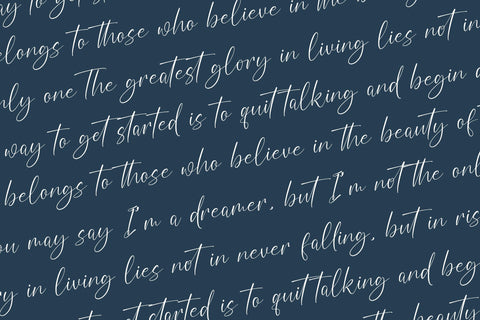 way to get started is to
belongs to those who believe in the b
only one The greatest glory in living lies not in
way to get started is to quit talking and begin d
belongs to those who believe in the beauty of t
you may say I'm a dreamer, but I'm not the onl
ry in living lies not in never falling, but in ris
t started is to quit talking and beg
the beauty